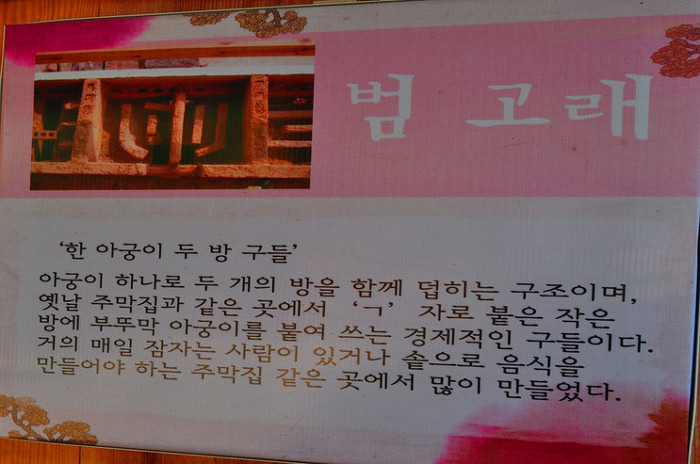 범 고래
‘한 아궁이 두 방 구들’
아궁이 하나로 두 개의 방을 함께 덥히는 구조이며,
옛날 주막집과 같은 곳에서 ‘ㄱ’ 자로 붙은 작은
방에 부뚜막 아궁이를 붙여 쓰는 경제적인 구들이다.
거의 매일 잠자는 사람이 있거나 솥으로 음식을
만들어야 하는 주막집 같은 곳에서 많이 만들었다.